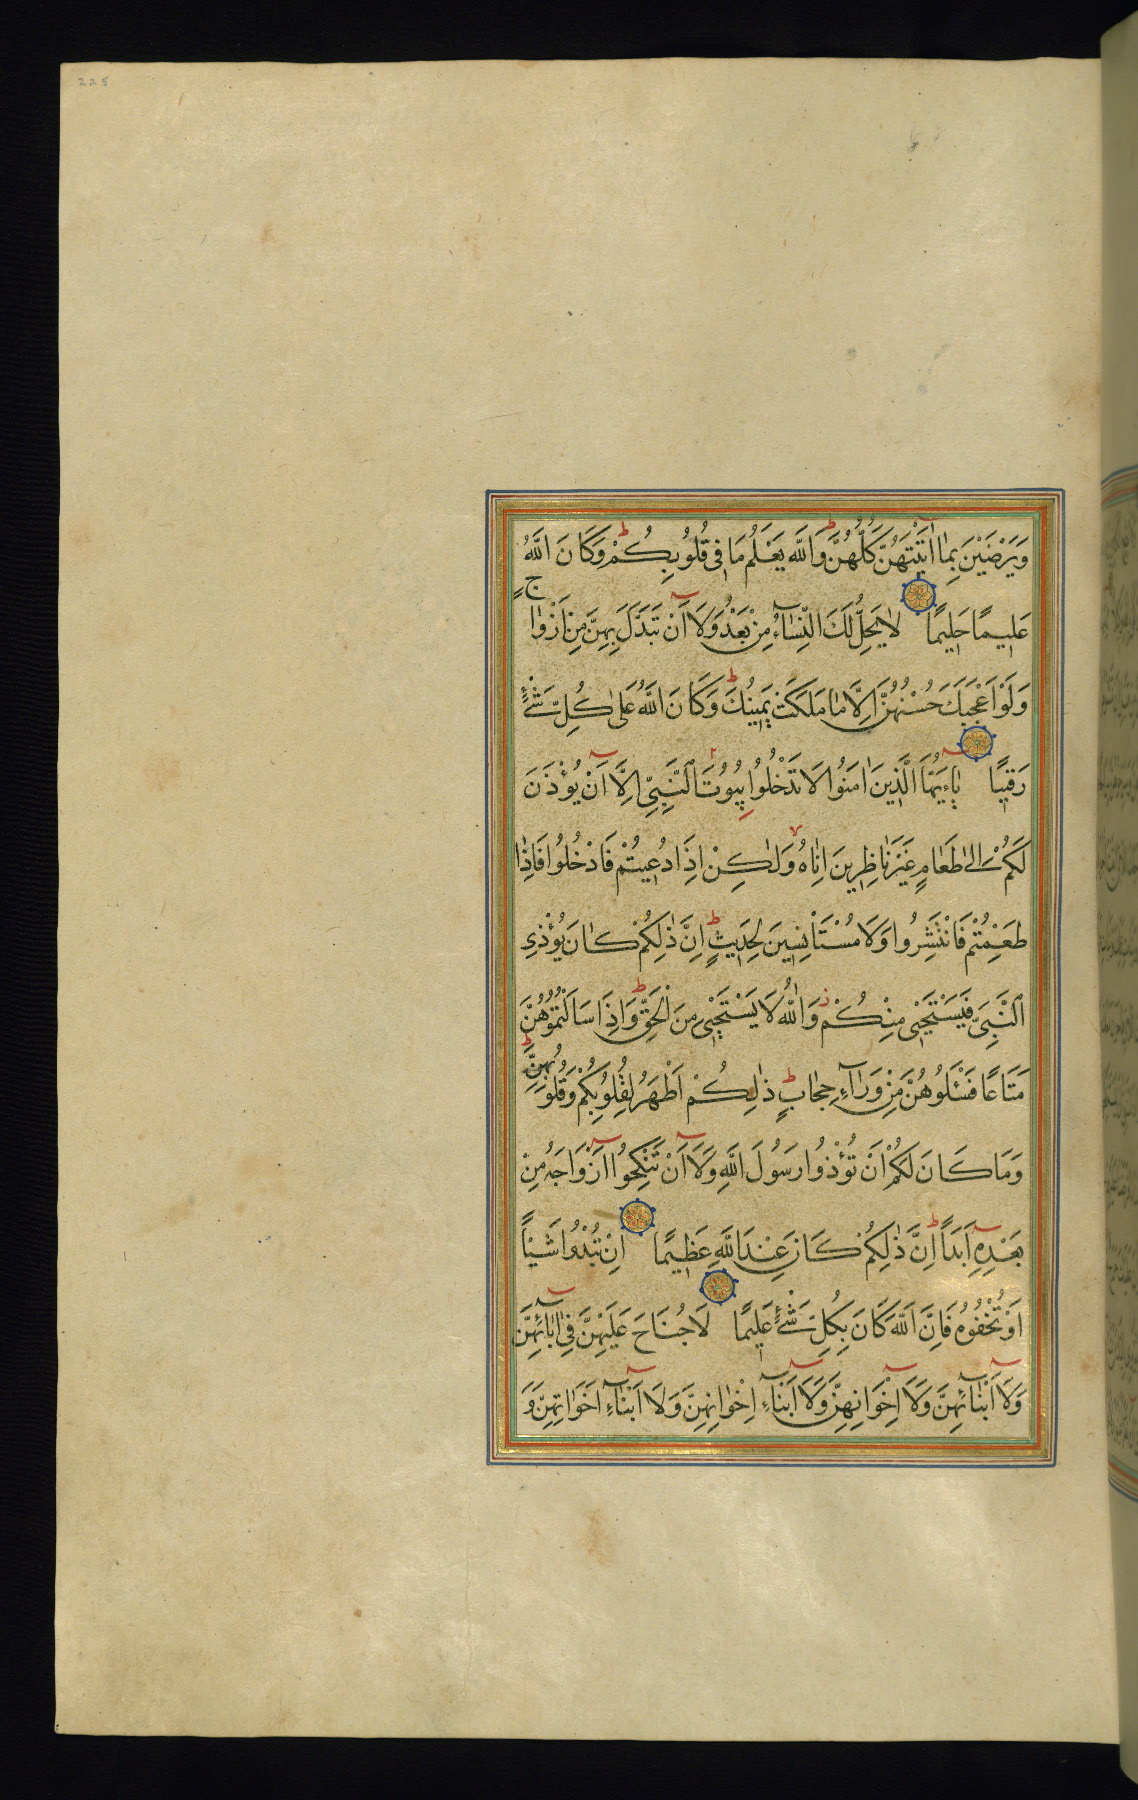 225
وَيَرْضَيْنَ بِمَا اٰتَيْتَهُنَّ كُلُّهُنَّ ط وَاللّٰهُ يَعْلَمُ مَا فِى قُلُوبِكُمْ ط وَكَانَ اللّٰهُ
عَلِيمًا حَلِيمًا لَا يَحِلُّ لَكَ النِّسَاۤءُ مِنْ بَعْدُ وَلَاۤ اَنْ تَبَدَّلَ بِهِنَّ مِنْ اَزْوَاجٍ
وَلَوْ اَعْجَبَكَ حُسْنُهُنَّ اِلَّا مَا مَلَكَتْ يَمِينُكَ ط وَكَانَ اللّٰهُ عَلٰى كُلِّ شَىْءٍ
رَقِيبًا يٰاۤءَيُّهَا الَّذِينَ اٰمَنُوا لَا تَدْخُلُوا بُيُوتَ النَّبِىِّ اِلَّاۤ اَنْ يُؤْذَنَ
لَكُمْ اِلٰى طَعَامٍ غَيْرَ نَاظِرِينَ اِنَاهُ وَلٰكِنْ اِذَا دُعِيتُمْ فَادْخُلُوا فَاِذَا
طَعِمْتُمْ فَانْتَشِرُوا وَلَا مُسْتَاْنِسِينَ لِحَدِيثٍ ط اِنَّ ذٰلِكُمْ كَانَ يُؤْذِى
النَّبِىَّ فَيَسْتَحْيِى مِنْكُمْ ز وَاللّٰهُ لَا يَسْتَحْيِى مِنَ الْحَقِّ ط وَاِذَا سَاَلْتُمُوهُنَّ
مَتَاعًا فَسْئَلُوهُنَّ مِنْ وَرَاۤءِ حِجَابٍ ط ذٰلِكُمْ اَطْهَرُ لِقُلُوبِكُمْ وَقُلُوبِهِنَّ ط
وَمَا كَانَ لَكُمْ اَنْ تُؤْذُوا رَسُولَ اللّٰهِ وَلَاۤ اَنْ تَنْكِحُوۤا اَزْوَاجَهُ مِنْ
بَعْدِهِۤ اَبَدًا ط اِنَّ ذٰلِكُمْ كَانَ عِنْدَ اللّٰهِ عَظِيمًا اِنْ تُبْدُوا شَيْئًا
اَوْ تُخْفُوهُ فَاِنَّ اللّٰهَ كَانَ بِكُلِّ شَىْءٍ عَلِيمًا لَا جُنَاحَ عَلَيْهِنَّ فِىۤ اٰبَاۤئِهِنَّ
وَلَاۤ اَبْنَاۤئِهِنَّ وَلَاۤ اِخْوَانِهِنَّ وَلَاۤ اَبْنَاۤءِ اِخْوَانِهِنَّ وَلَاۤ اَبْنَاۤءِ اَخَوَاتِهِنَّ وَ